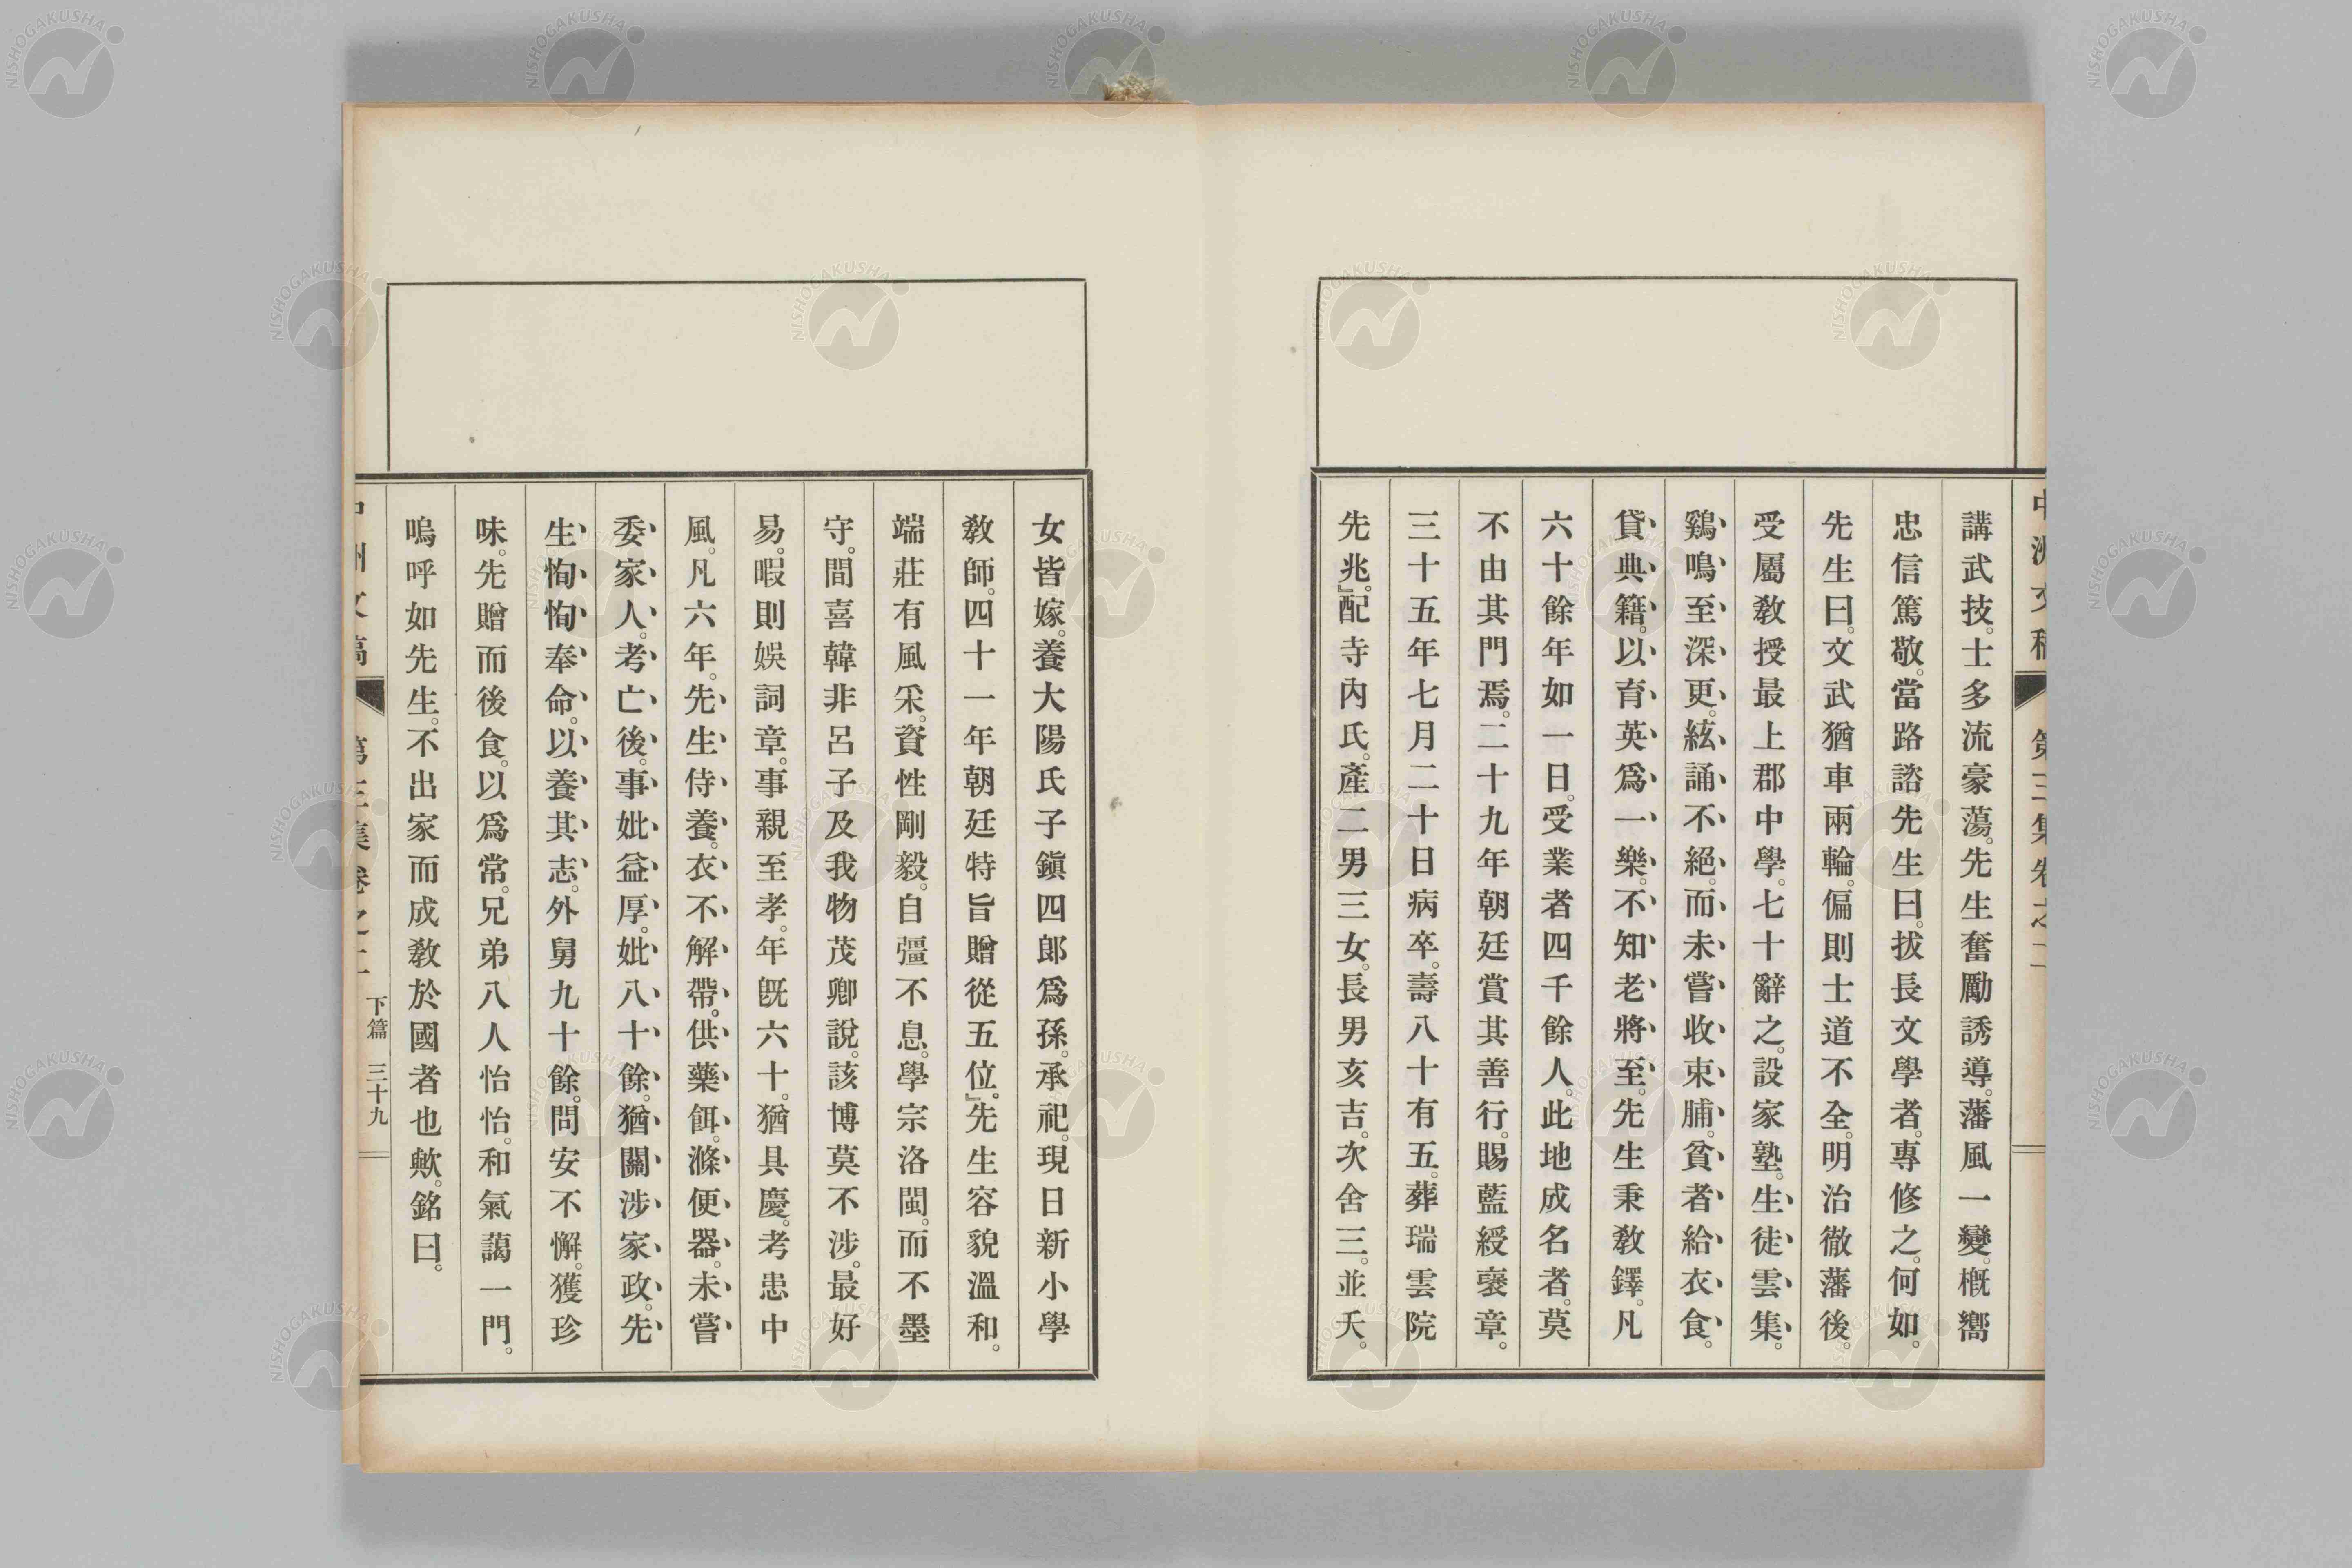 中洲文稿 第三集卷之二
講武技。士多流豪蕩。先生奮勵誘導。藩風一變。槪嚮
忠信篤敬。當路諮先生曰。拔長文學者。專修之。何如。
先生曰。文武猶車兩輪。偏則士道不全。明治徹藩後。
受屬敎授最上郡中學。七十辭之。設家塾。生徒雲集。
鷄鳴至深更。絃誦不絕。而未嘗收束脯。貧者給衣食。
貸典籍。以育英爲一樂。不知老將至。先生秉敎鐸。凡
六十餘年如一日。受業者四千餘人。此地成名者。莫
不由其門焉。二十九年朝廷賞其善行。賜藍綬褒章。
三十五年七月二十日病卒。壽八十有五。葬瑞雲院
先兆。』配寺內氏。產二男三女。長男亥吉。次舍三。並夭。
女皆嫁。養大陽氏子鎭四郎爲孫。承祀。現日新小學
敎師。四十一年朝廷特旨贈從五位。』先生容貌溫和。
端莊有風采。資性剛毅。自彊不息。學宗洛閩。而不墨
守。間喜韓非呂子及我物茂卿說。該博莫不涉。最好
易。暇則娛詞章。事親至孝。年旣六十。猶具慶。考患中
風。凡六年。先生侍養。衣不解帶。供藥餌。滌便器。未嘗
委家人。考亡後。事妣益厚。妣八十餘。猶關涉家政。先
生恂恂奉命。以養其志。外舅九十餘。問安不懈。獲珍
味。先贈而後食。以爲常。兄弟八人怡怡。和氣藹一門。
嗚呼如先生。不出家而成敎於國者也歟。銘曰。
中洲文稿 第三集卷之二 下篇 三十九
NISHOGAKUSHA